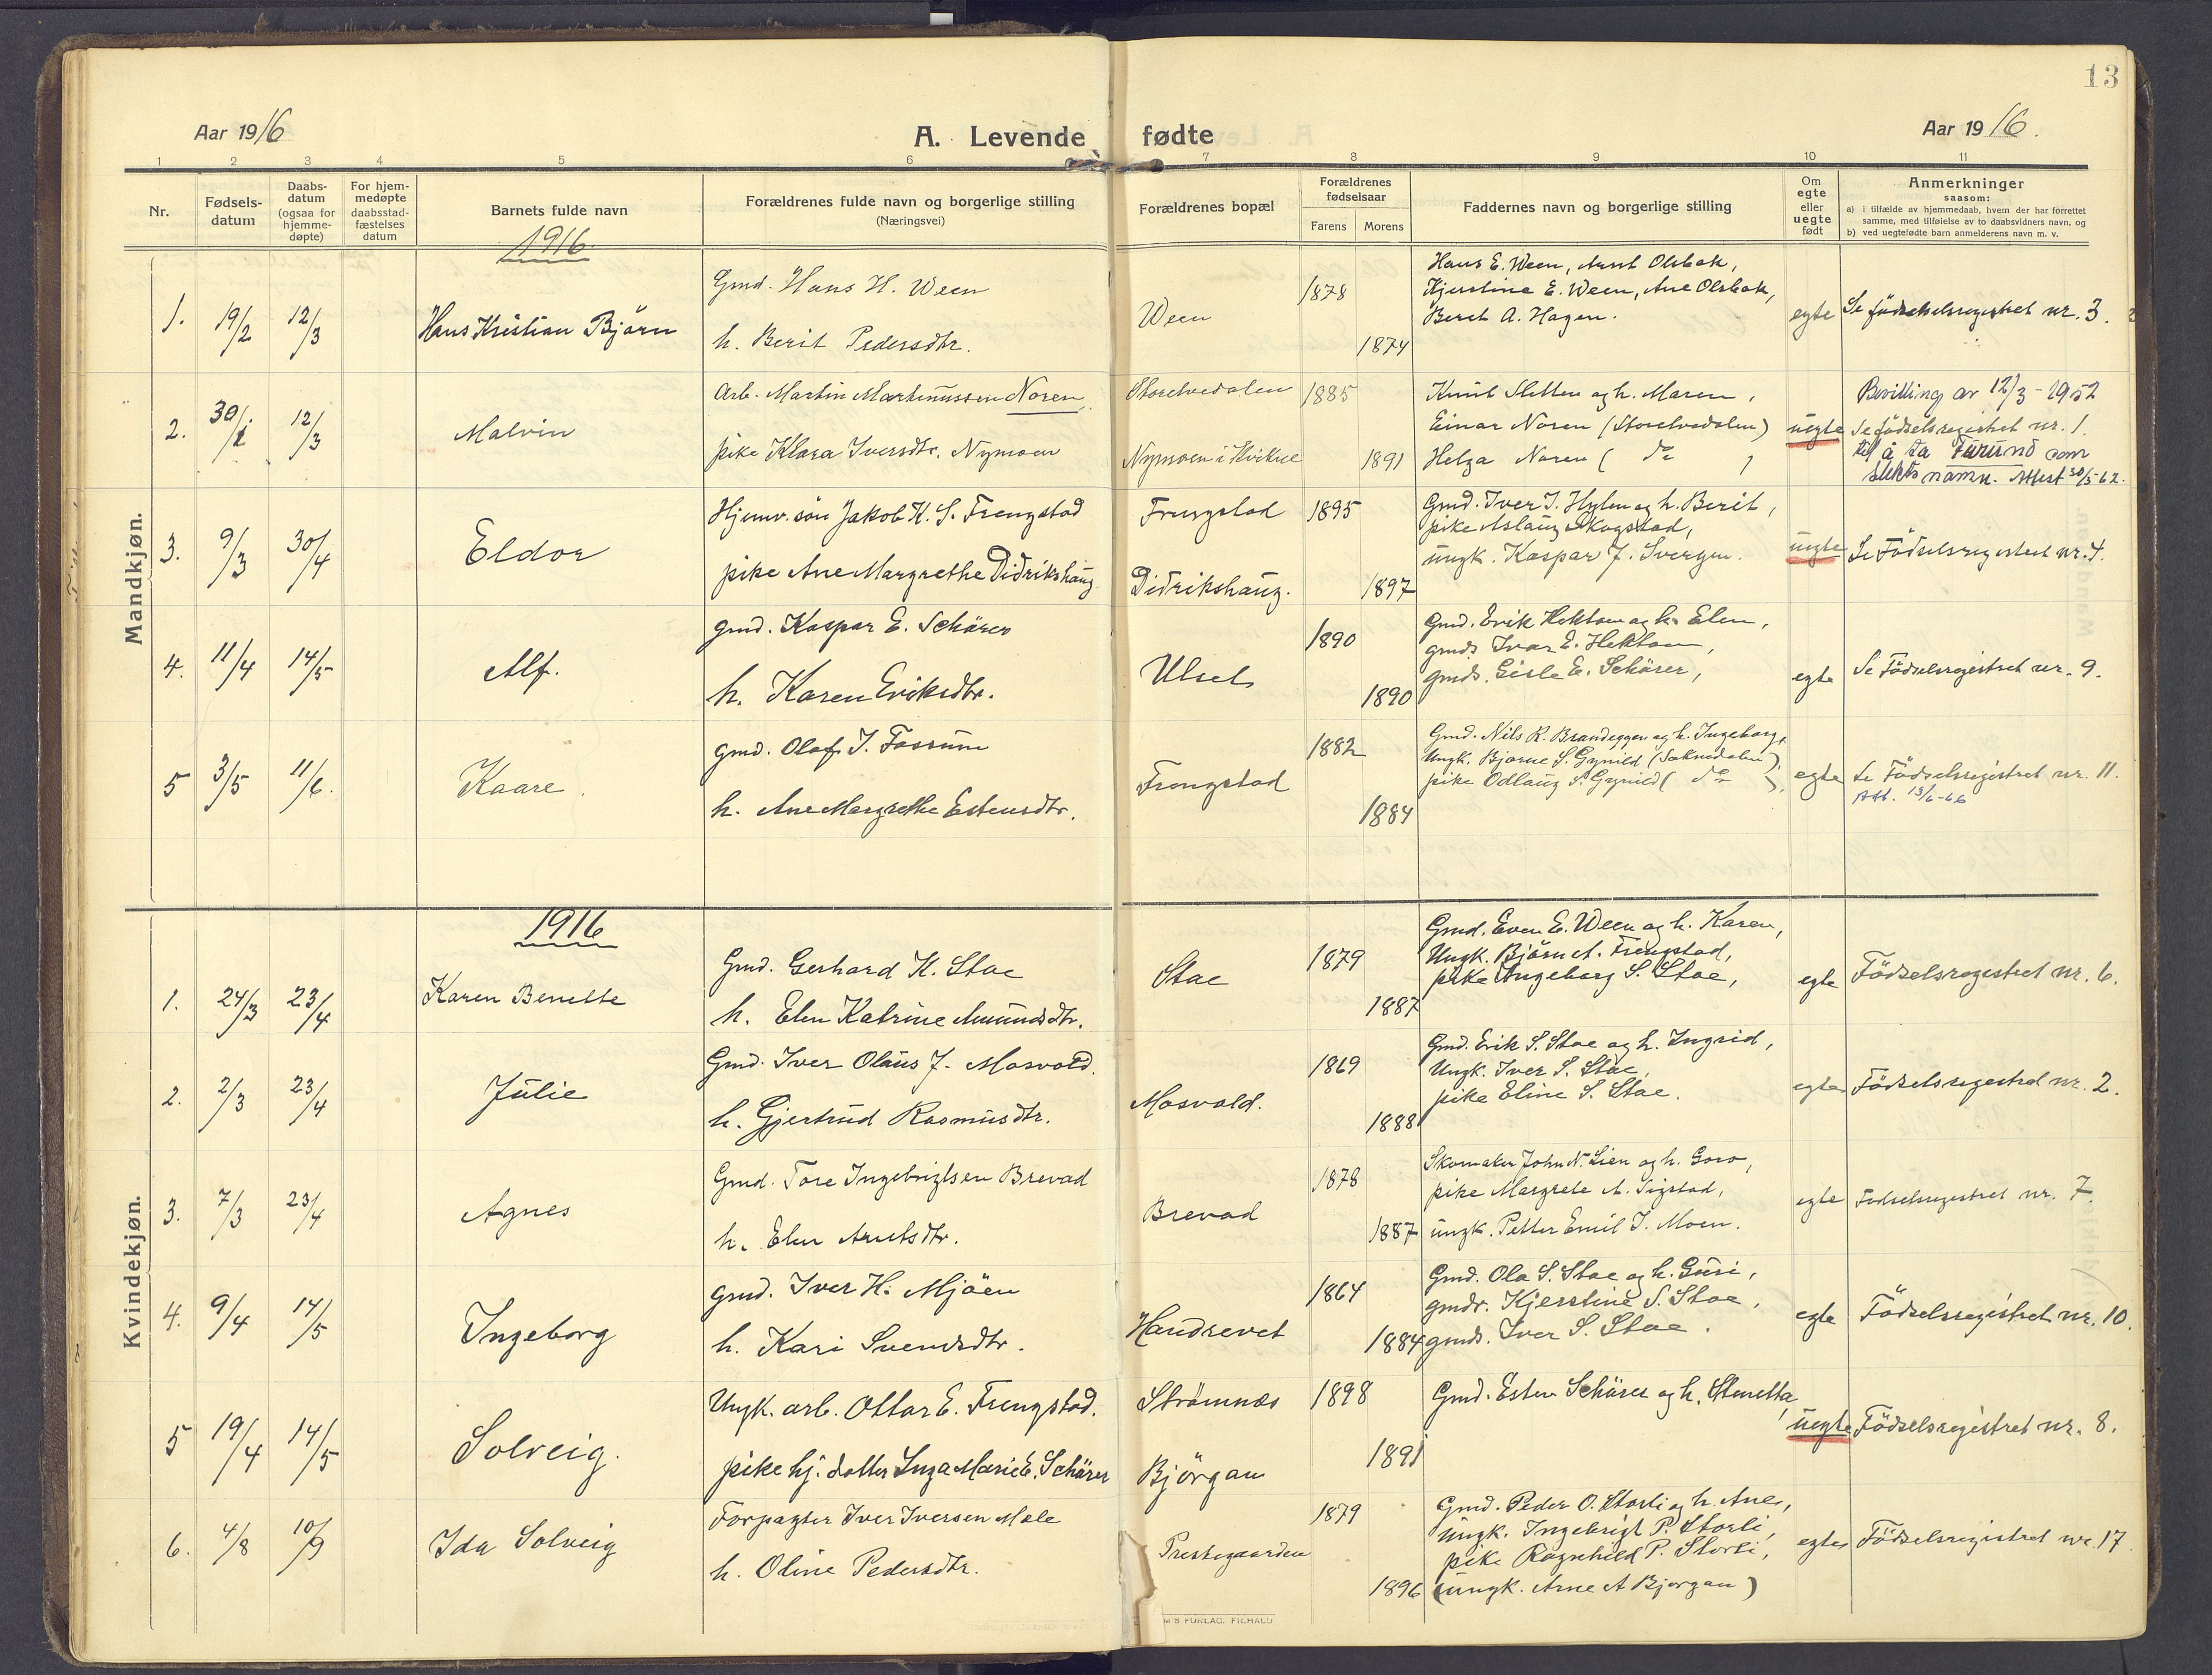 13
Aar 1916
A. Levende fødte
Aar 1916.
1 2 3 4 5 6 7 8 9 10 11
Nr.
Fødsels-
datum
Daabs-
datum
(ogsaa for
hjemme-
døpte)
For hjem-
medøpte
daabsstad-
fæstelses
datum
Barnets fulde navn
Forældrenes fulde navn og borgerlige stilling
(Næringsvei)
Forældrenes bopæl
Forældrenes
fødselsaar
Farens Morens
Faddernes navn og borgerlige stilling
Om
egte
eller
uegte
født
Anmerkninger
saasom:
a) i tilfælde av hjemmedaab, hvem der har forrettet
samme, med tilføielse av to daabsvidners navn, og
b) ved uegtefødte barn anmelderens navn m. v.
Mandkjøn.
1916.
1. 19/2 12/3 Hans Kristian Björn
Gmd. Hans H. Ween
h. Berit Pedersdtr.
Ween
1878
1874
Hans E. Ween, Arnt Olsbak,
Kjerstine E. Ween, Ane Olsbak,
Beret A. Hagen.
egte
Se fødselsregistret nr. 3.
2. 30/1 12/3 Malvin
Arb. Martin Martinussen Noren
pike Klara Iversdtr. Nymoen
Storelvedalen
Nymoen i Kvikne
1885
1891
Knut Sletten og h. Maren,
Einar Noren (Storelvedalen)
Helga Noren ( do )
uegte
Bevilling av 12/3 - 1952
Se fødselsregistret nr. 1.
til å ta Furund som
slektsnamn. Attest 30/5-62.
3. 9/3 30/4 Eldor
Hjemv. søn Jakob K. S. Frengstad
pike Ane Margrethe Didrikshaug
Frengstad
Didrikshaug.
1895
1897
Gmd. Iver J. Hylen og h. Berit,
pike Aslaug Skogstad,
ungk. Kaspar J. Svergen.
uegte
Se Fødselsregistret nr. 4.
4. 11/4 14/5 Alf.
gmd. Kaspar E. Schärer
h. Karen Eriksdtr.
Ulset
1890
1890
Gmd. Erik Hektoen og h. Elen,
gmds Ivar E. Hektoen,
gmds. Gisle E. Schärer,
egte
Se Fødselsregistret nr. 9.
5 3/5 11/6. Kaare.
gmd. Olaf J. Fossum
h. Ane Margrethe Estensdtr.
Frengstad
1882
1884
Gmd. Nils R. Brandeggen og h. Ingeborg,
Ungk. Bjarne S. Gynild (Soknedalen),
pike Odlaug S. Gynild ( do ),
egte
Se Fødselsregistret nr. 11.
Att. 13/6-66
Kvindekjøn.
1916
1. 24/3 23/4 Karen Benette
Gmd. Gerhard K. Stae
h. Elen Katrine Amundsdtr.
Stae
1879
1887
Gmd. Even E. Ween og h. Karen,
Ungk. Björn A. Frengstad,
pike Ingeborg S. Stae,
egte
Fødselsregistret nr. 6.
2. 2/3 23/4 Julie
Gmd. Iver Olaus J. Mosvold.
h. Gjertrud Rasmusdtr.
Mosvold.
1869
1888
Gmd. Erik S. Stae og h. Ingrid,
Ungk. Iver S. Stae,
pike Eline S. Stae.
egte
Fødselsregistret nr. 2.
3. 7/3 23/4 Agnes
Gmd. Tore Ingebrigtsen Brevad
h. Elen Arntsdtr.
Brevad
1878
1887
Skomaker John N. Lien og h. Goro,
pike Margrete A. Sigstad,
ungk. Petter Emil J. Moen.
egte
Fødselsregistret nr. 7.
4. 9/4 14/5 Ingeborg
gmd. Iver H. Mjöen
h. Kari Svendsdtr.
Handrevet
1864
1884
Gmd. Ola S. Stae og h. Guri,
gmdr. Kjerstine S. Stae,
gmds. Iver S. Stae.
egte
Fødselsregistret nr. 10.
5 19/4 14/5 Solveig.
Ungk. arb. Ottar E. Frengstad.
pike hj. datter Inga Marie E. Schärer
Strømnes
Björgan
1898
1891
Gmd. Esten Schärer og h. Stenetta,
uegte
Fødselsregistret nr. 8.
6. 4/8 10/9 Ida Solveig
Forpagter Iver Iversen Mæle
h. Oline Pedersdtr.
Prestegaarden
1879
1896
Gmd. Peder O. Storli og h. Ane,
ungk. Ingebrigt P. Storli,
pike Ragnhild P. Storli,
(ungk. Arne A Bjørgan)
egte
Fødselsregistret nr. 17
M'S FORLAG. FR.HALD